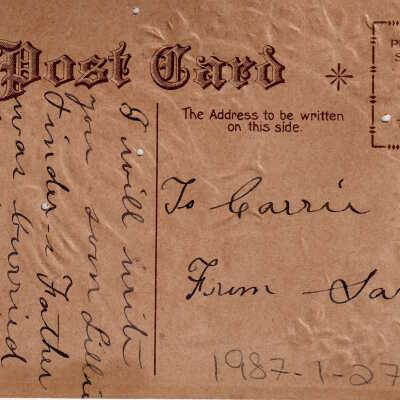 Post Card
The Address to be written
on this side.
I will write
you soon Lillie
Father
was burried
To Carrie
From Sa
1987-1-27